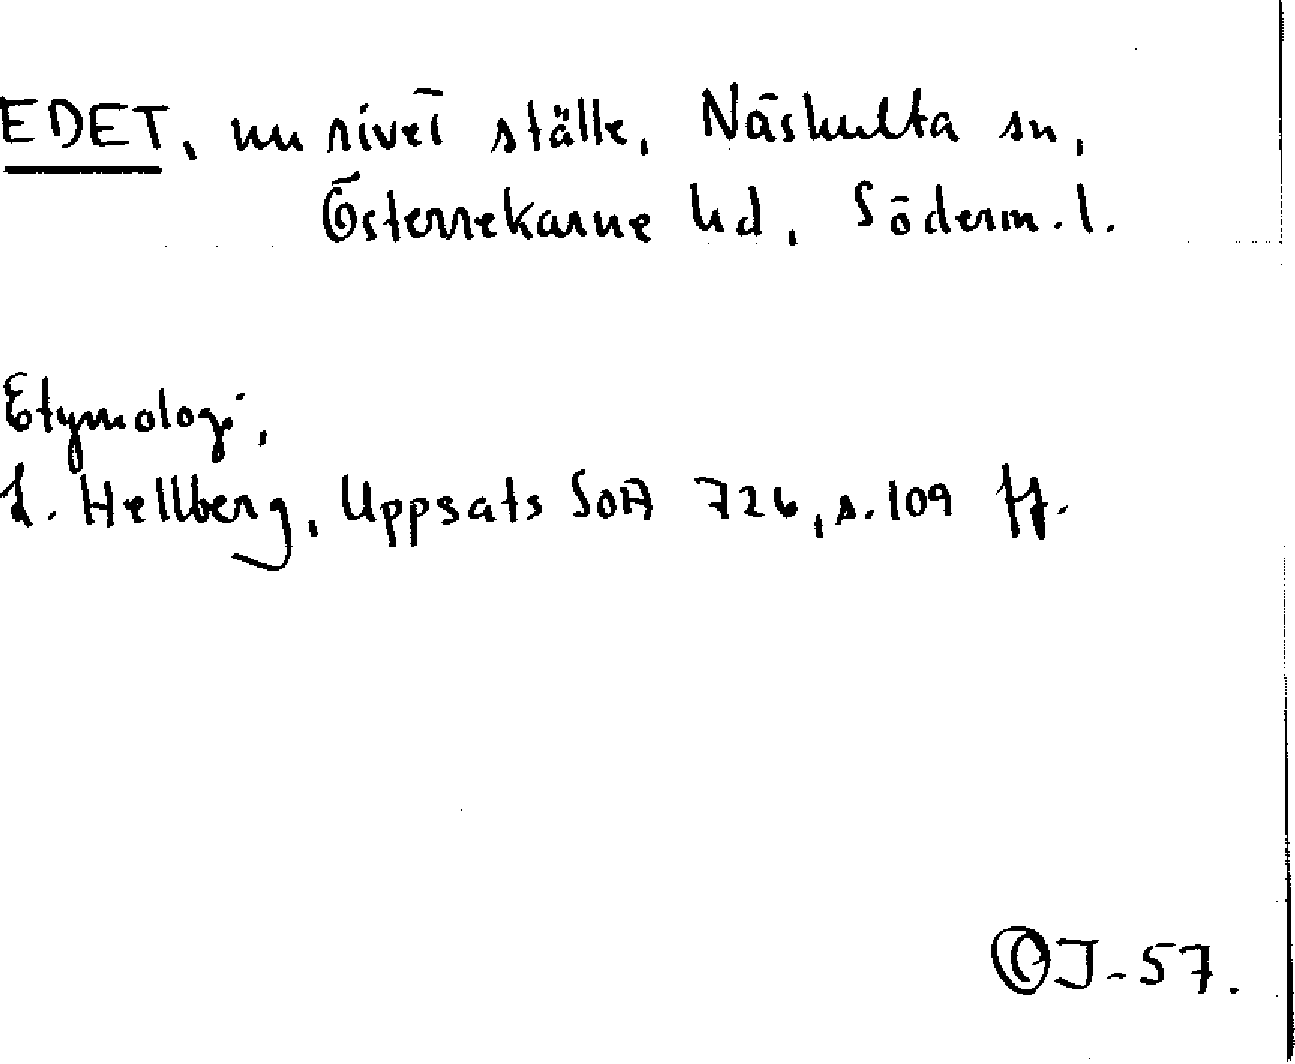 EDET, nu rivet ställe, Näshulta sn,
Österrekarne hd, Söderm. l.
Etymologi,
L. Hellberg, Uppsats SOA 726, s. 109 ff.
OJ-57.